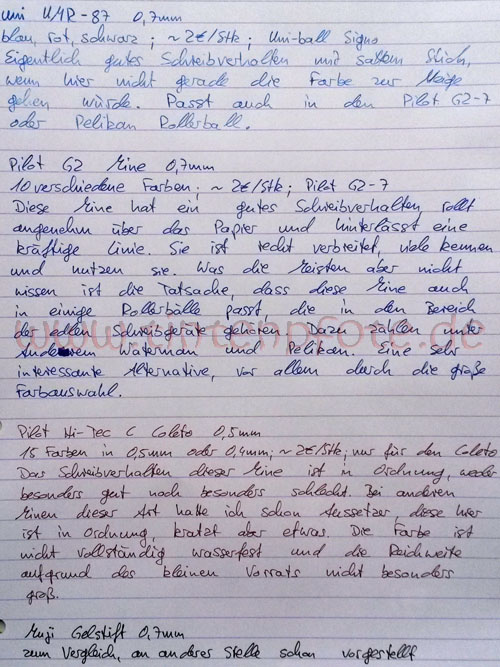 uni UMR-87 0,7mm
blau, rot, schwarz; ~2€/Stk; Uni-ball Signo
Eigentlich gutes Schreibverhalten mit sattem Strich,
wenn hier nicht gerade die Farbe zur Neige
gehen würde. Passt auch in den Pilot G2-7
oder Pelikan Rollerball.
Pilot G2 Mine 0,7mm
10 verschiedene Farben; ~2€/Stk; Pilot G2-7
Diese Mine hat ein gutes Schreibverhalten, rollt
angenehm über das Papier und hinterlässt eine
kräftige Linie. Sie ist recht verbreitet, viele kennen
und nutzen sie. Was die Meisten aber nicht
wissen ist die Tatsache, dass diese Mine auch
in einige Rollerbälle passt, die in den Bereich
der edlen Schreibgeräte gehören. Dazu zählen unter
Anderem Waterman und Pelikan. Eine sehr
interessante Alternative, vor allem durch die große
Farbauswahl.
www.tintenpfote.de
Pilot Hi-Tec C Coleto 0,5mm
15 Farben in 0,5mm oder 0,4mm; ~2€/Stk; nur für den Coleto
Das Schreibverhalten dieser Mine ist in Ordnung, weder
besonders gut noch besonders schlecht. Bei anderen
Minen dieser Art hatte ich schon Aussetzer, diese hier
ist in Ordnung, kratzt aber etwas. Die Farbe ist
nicht vollständig wasserfest und die Reichweite
aufgrund des kleinen Vorrats nicht besonders
groß.
Muji Gelstift 0,7mm
zum Vergleich, an anderer Stelle schon vorgestellt